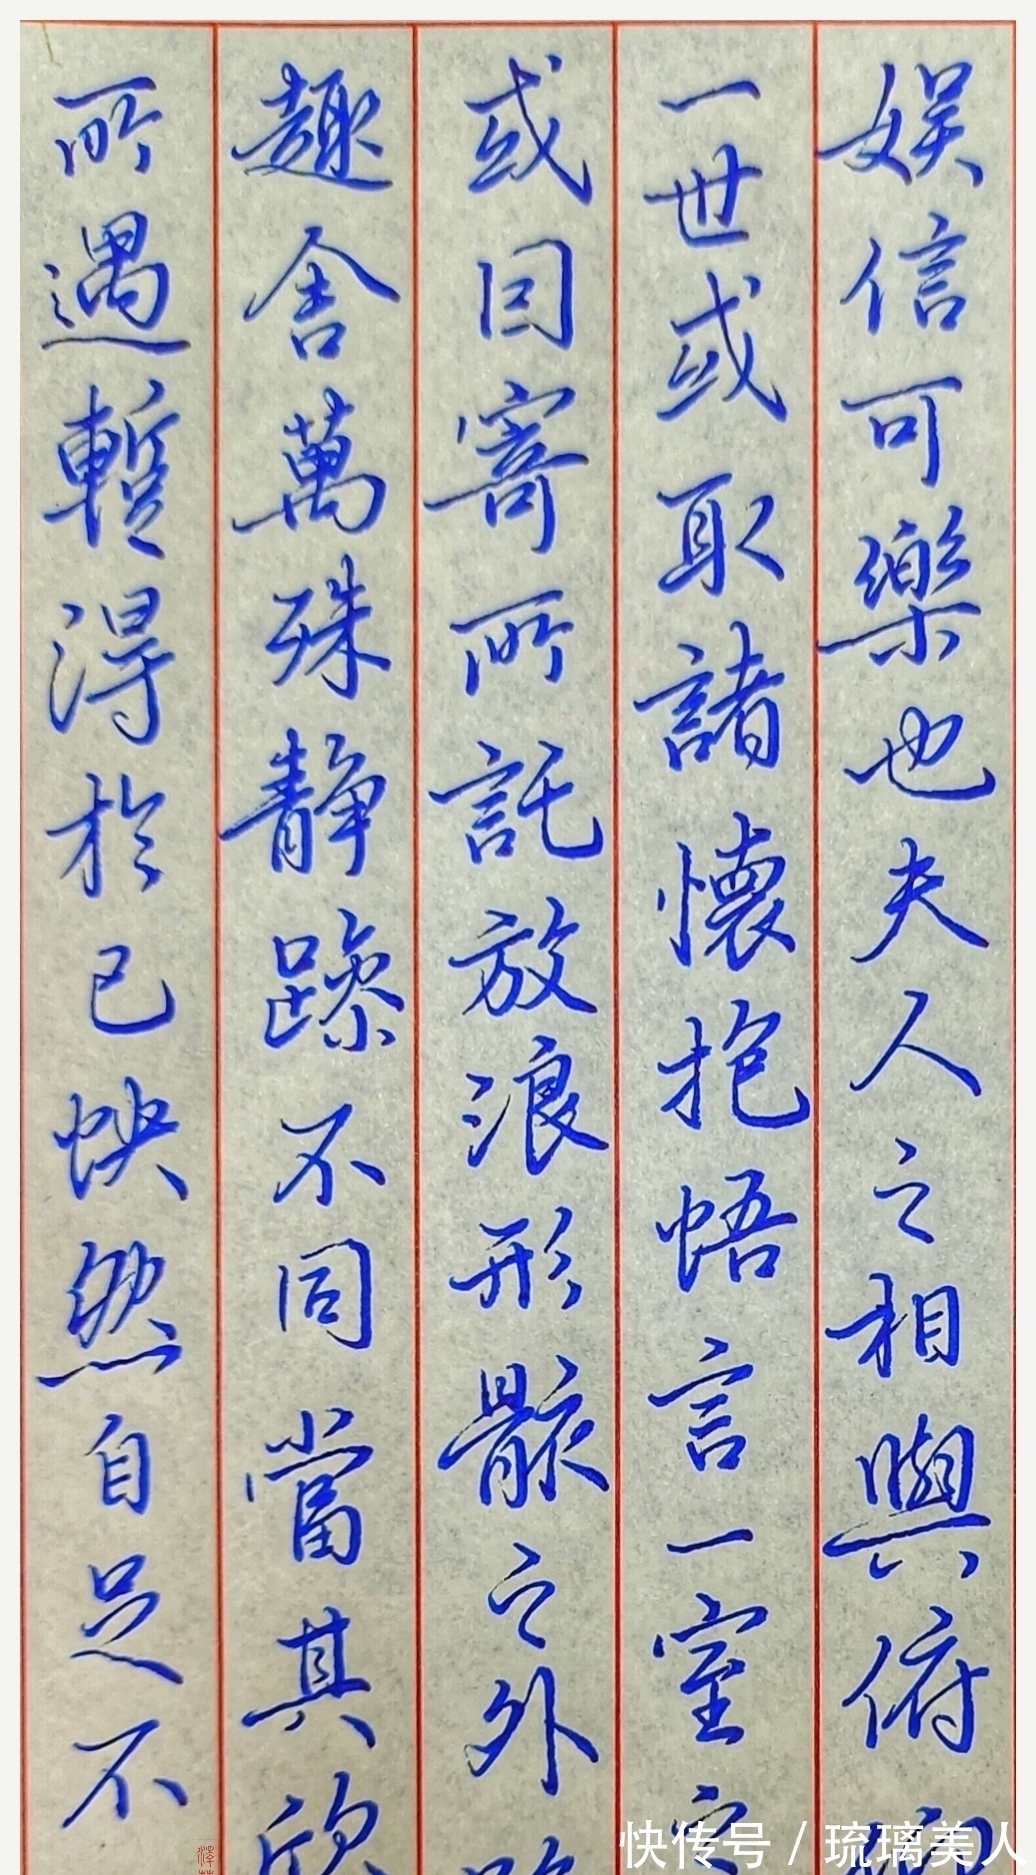 娱信可樂也夫人之相與俯
一世或取諸懷抱悟言一室
或因寄所託放浪形骸之外
趣舍萬殊静躁不同當其欣
所遇暫得於己怏然自足不
快传号/琉璃美人